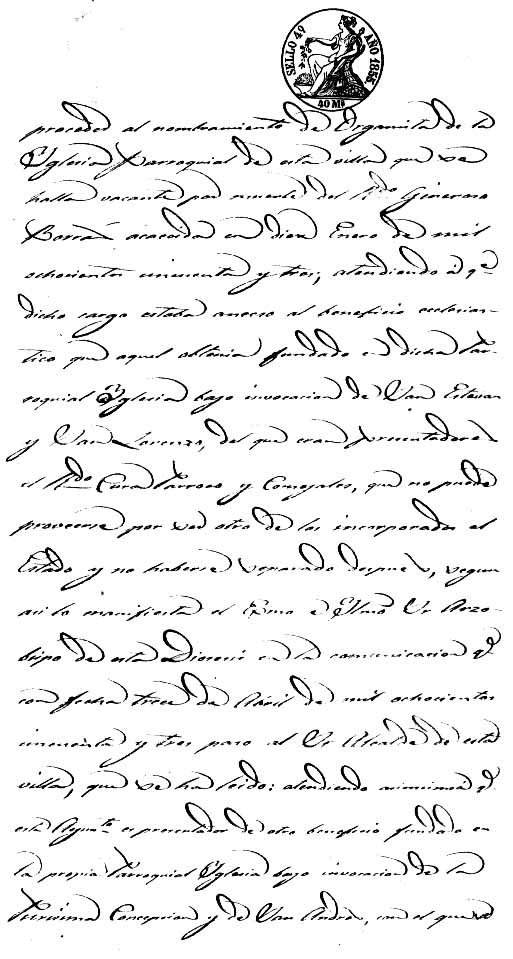 SELLO 4º AÑO 1855
40 Ms
proceder al nombramiento de Organista de la
Yglesia Parroquial de esta villa que se
halla vacante por muerte del Rdo Gineroso
Borrás acaecida en diez Enero de mil
ochocientos cincuenta y tres; atendiendo á q.e
dicho cargo estaba anecso al beneficio eclesias-
tico que aquel obtenia fundado en dicha Par-
roquial Yglesia bajo invocacion de San Estevan
y San Lorenzo, del que eran presentadores
el Rdo Cura Parroco y Consejales, que no puede
proveerse por ser otro de los incorporados al
Estado y no haberse separado despues, segun
asi lo manifiesta el Exmo é Ylmo Sr Arzo-
bispo de esta Diocesi en la comunicacion q.e
con fecha trece de Abril de mil ochocientos
cincuenta y tres paso al Sr Alcalde de esta
villa, que se ha leido: atendiendo asimismo á q.e
este Ayunto es presentador de otro beneficio fundado en
la propia Parroquial Yglesia bajo invocacion de la
Purisima Concepcion y de San Andrés, con el que se